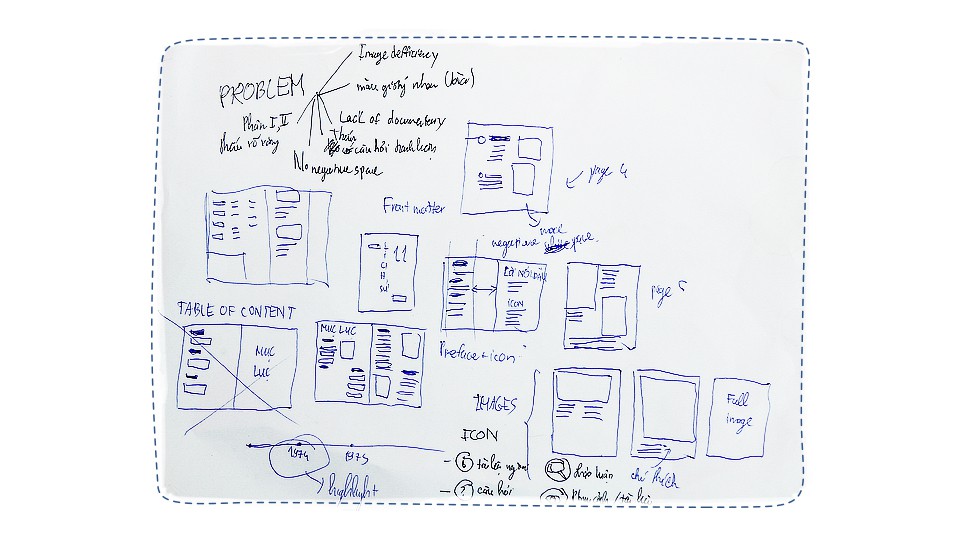 Image defficiency
PROBLEM
màu giấy nhàu
Phần I, II
thiếu rõ ràng
Lack of documentary
câu hỏi tranh luận
No negative space
page 4
Front matter
more
negative space
11
LỊCH
SỬ
LỜI NÓI ĐẦU
ICON
page 5
TABLE OF CONTENT
MỤC LỤC
MỤC
LỤC
Preface + icon
IMAGES
Full
image
ICON
1974
1975
highlight
- i
- ? câu hỏi
thảo luận
chú thích